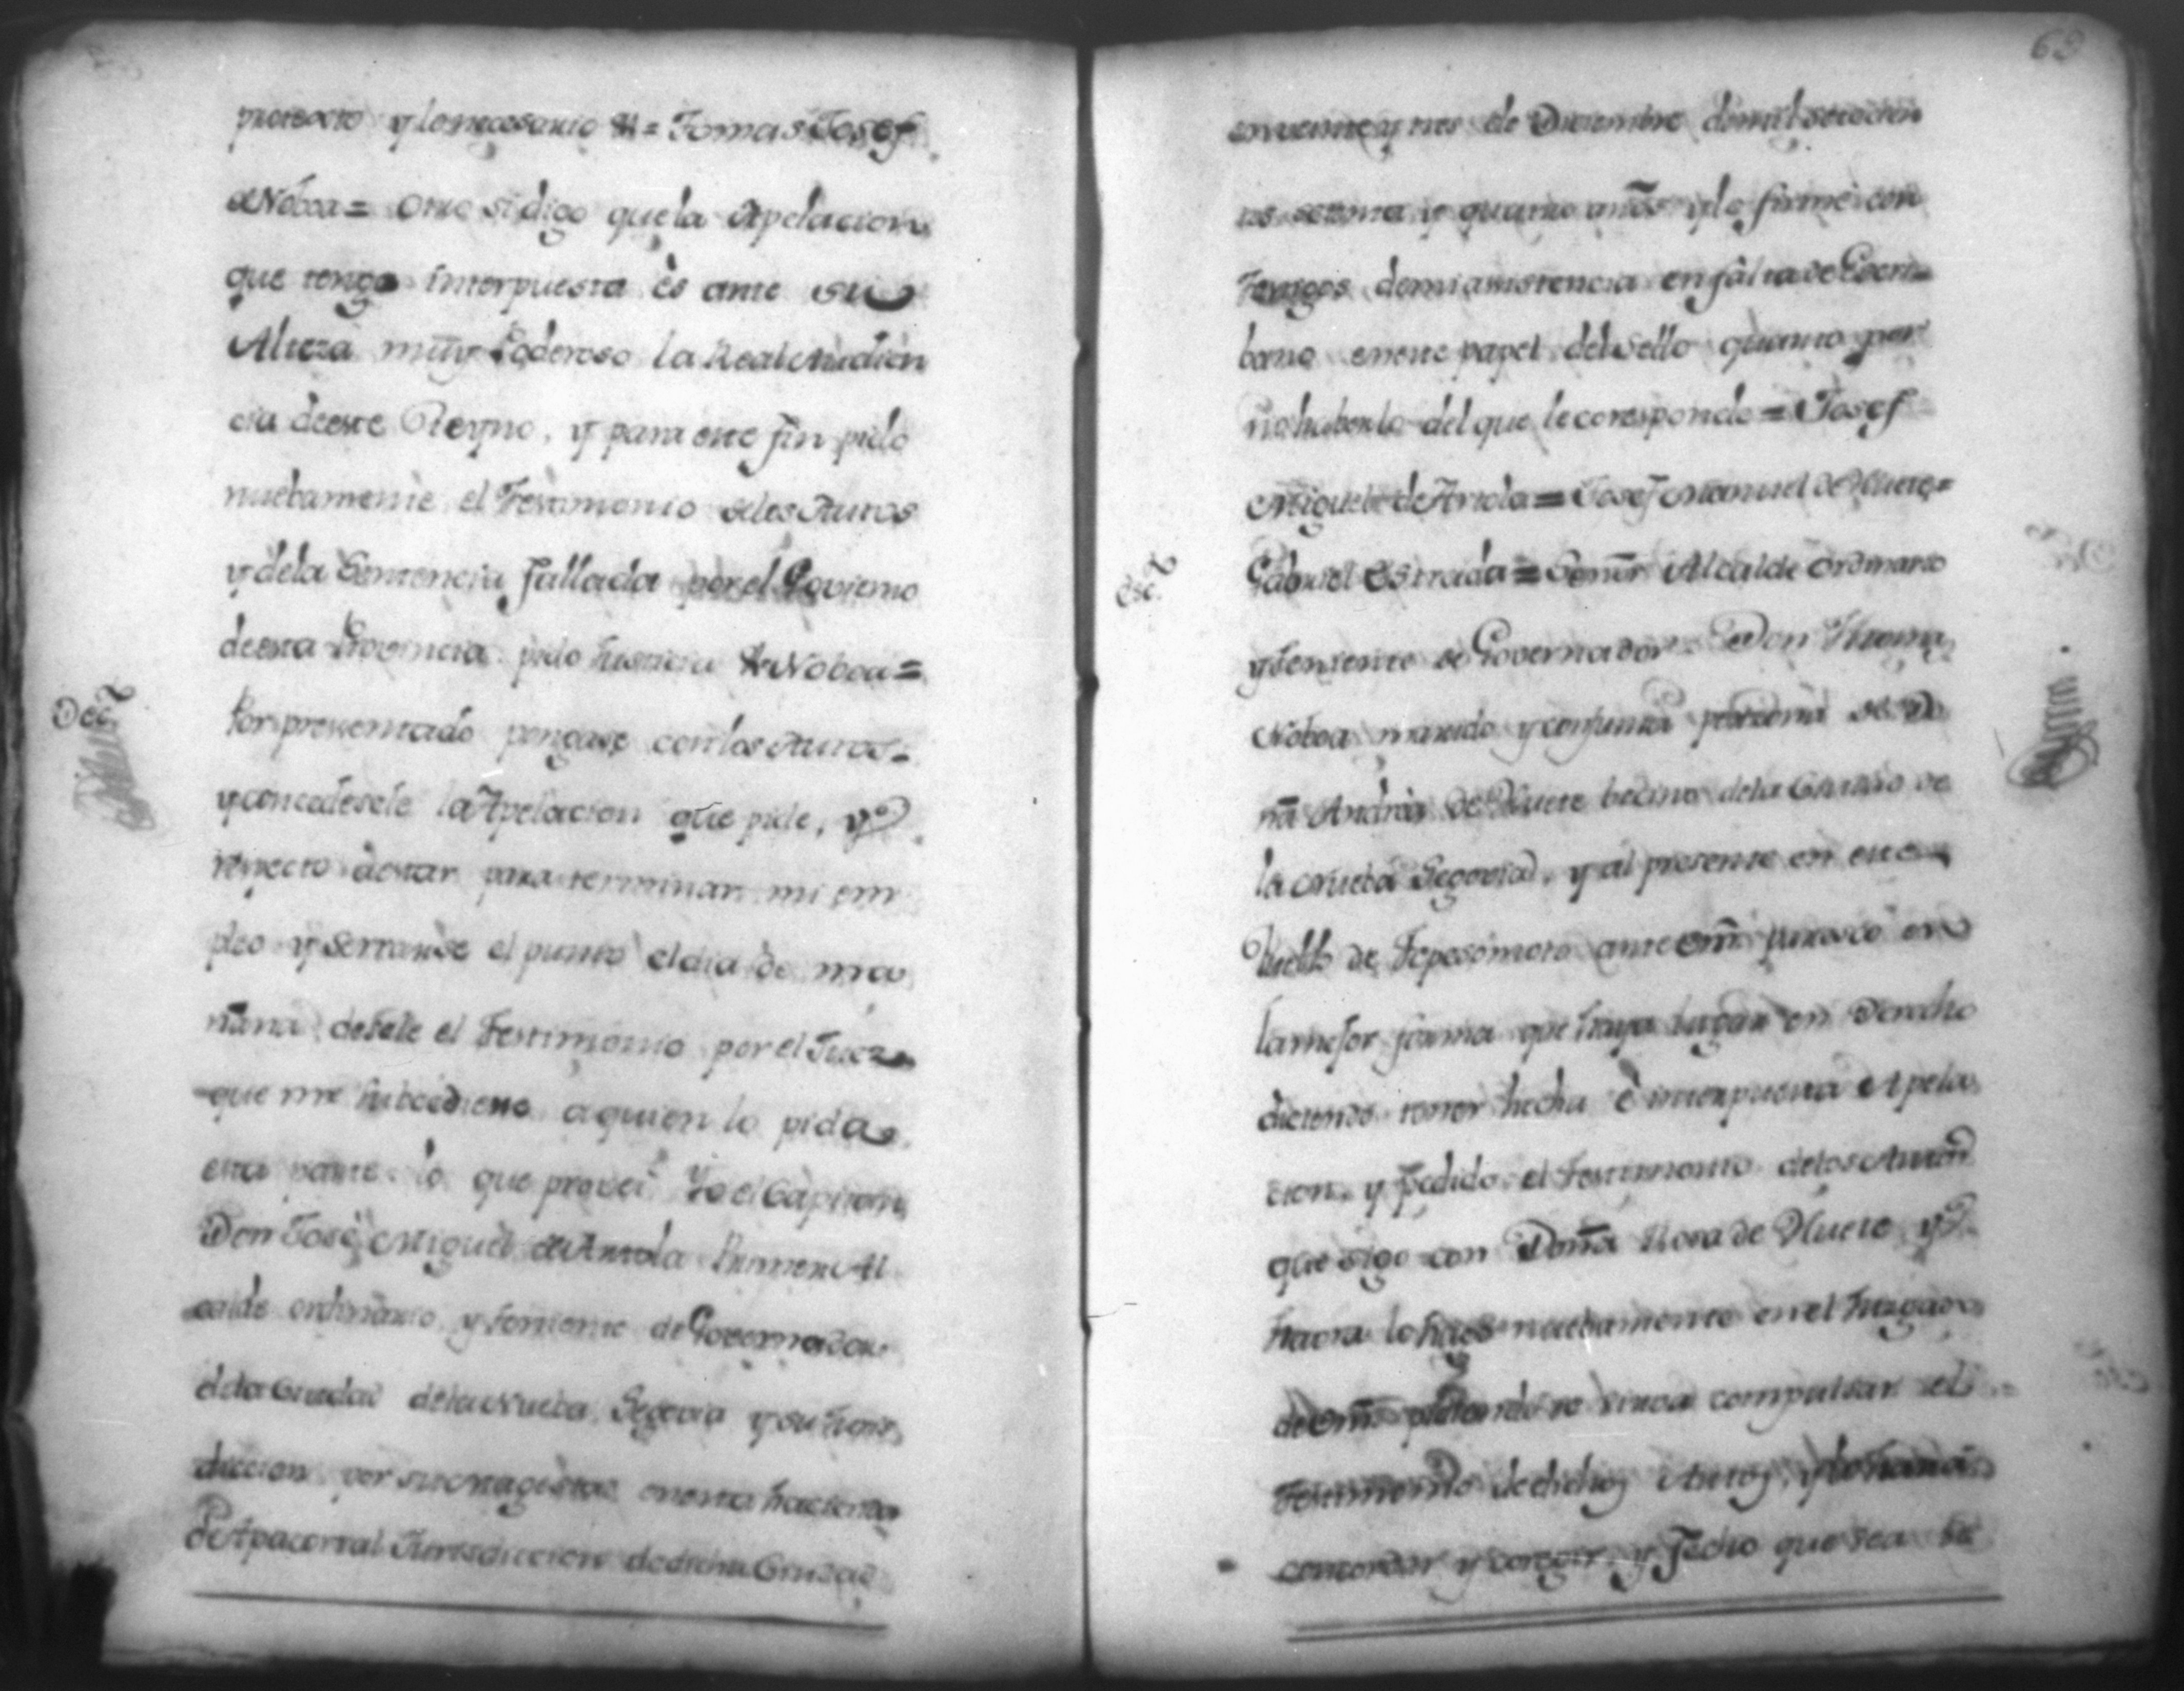 protexto y lo necesario &a = Tomas Josef
de Noboa = Otro si digo que la Apelacion
que tengo interpuesta ès ante su
Alteza muy Poderoso la Real Audien
cia de este Reyno, y para este fin pido
nuebamente el Testimonio de los Autos
y de la Sentencia fallada por el Govierno
de esta Provincia pido Justicia &a Noboa =
Decto
Por presentado pongase con los Autos =
y concedesele la Apelacion que pide, y
respecto à estar para terminar mi em
pleo y serrarse el punto el dia de ma
ñana desele el Testimonio por el Juez
que me subcediere a quien lo pida
esta parte lo que provei Yo el Capitan
Don José Miguel de Arriola Primero Al
calde ordinario y Teniente de Governador
de la Ciudad de la Nueba Segovia y su Juris
diccion por su Magestad en esta hacienda
de Apacorral Jurisdiccion de dicha Ciudad
69
en veinte y tres de Diciembre de mil setecien
tos setenta y quatro años y lo firmé con
Testigos de mi asistencia en falta de Escri=
bano en este papel del sello quarto por
no haberlo del que le corresponde = Josef
Miguel de Arriola = Josef Manuel de Huete =
Gabriel Estrada = Señor Alcalde ordinario
y Teniente de Governador = Don Thomas
Noboa marido y conjunta persona de Do
ña Andrea de Huete becino de la Ciudad de
la Nueba Segovia, y al presente en este
Pueblo de Teposomoto ante Vm paresco en
la mejor forma que haya lugar en Derecho
diciendo tener hecha è interpuesta Apela
cion y pedido el Testimonio de los Autos
que sigo con Doña Rosa de Huete y
haora lo hago nuebamente en el Juzgado
de Vm pidiendo se sirva compulsar el
Testimonio de dichos Autos, y
concordar y corregir, y fecho que sea se